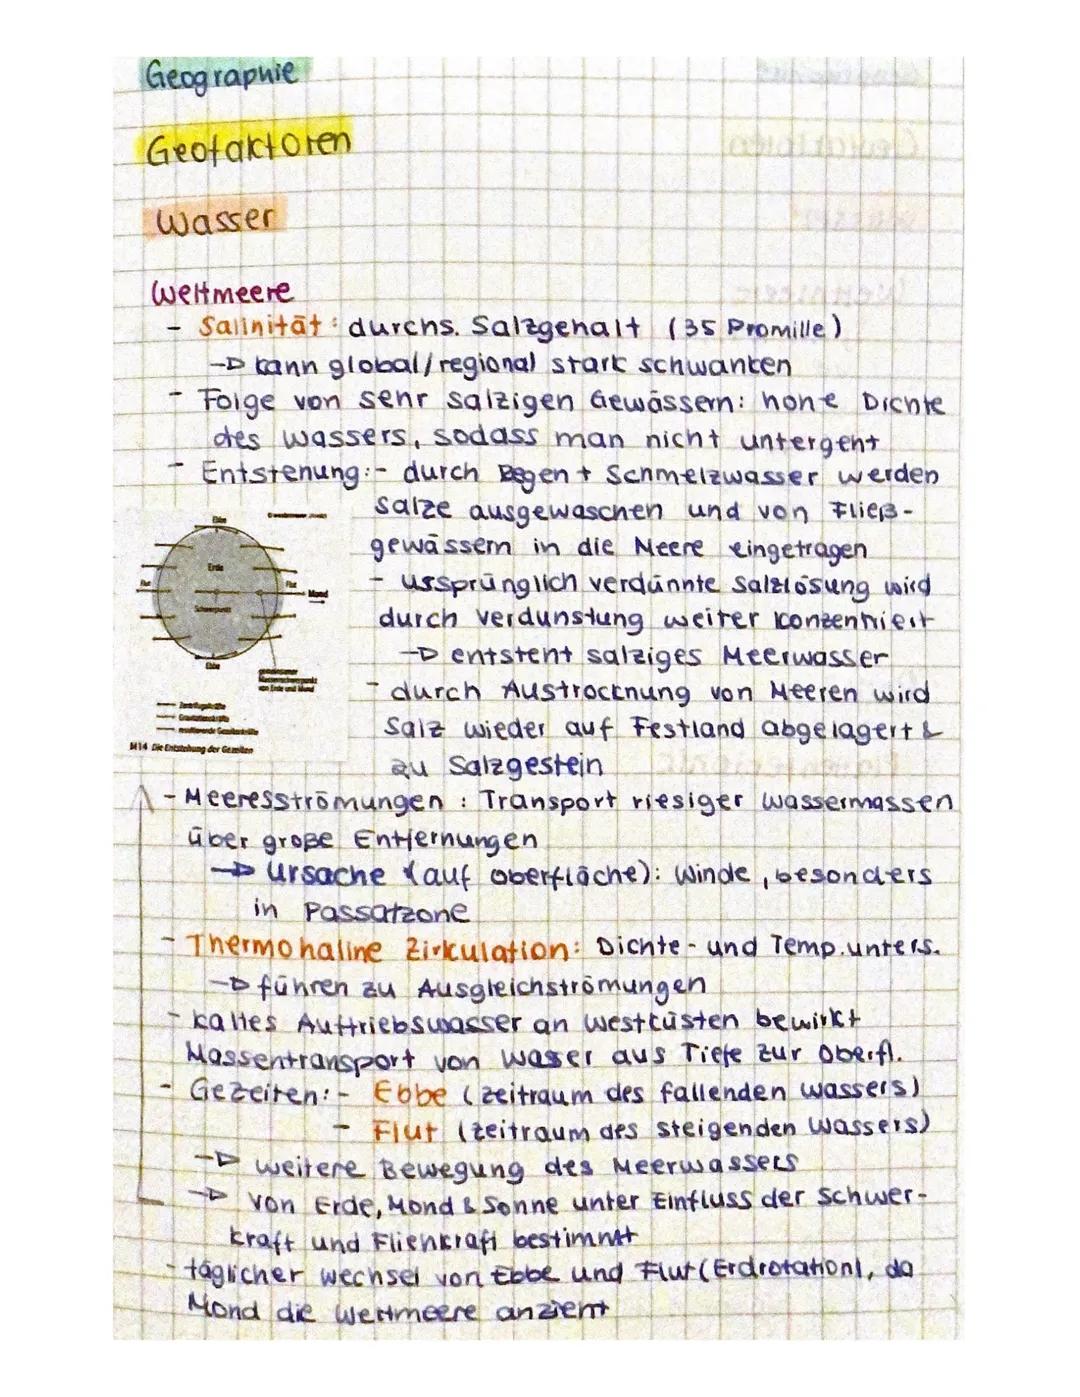 Geographie
Geofaktoren
Wasser
Weltmeere
- Salinität: durchs. Salzgehalt (35 Promille)
→ kann global/regional stark schwanken
- Folge von sehr salzigen Gewässern: hohe Dichte
des Wassers, sodass man nicht untergeht
- Entstehung: - durch Regen + Schmelzwasser werden
Salze ausgewaschen und von Fließ-
gewässern in die Meere eingetragen
- ursprünglich verdünnte Salzlösung wird
durch Verdunstung weiter konzentriert
→ entsteht salziges Meerwasser
- durch Austrocknung von Meeren wird
Salz wieder auf Festland abgelagert &
zu Salzgestein
Ebbe
Erde
Flut
Flut
Mond
Schwerpunkt
Ebbe
gemeinsamer
Massenschwerpunkt
von Erde und Mond
Zentrifugalkräfte
Gravitationskräfte
resultierende Gezeitenkräfte
M14 Die Entstehung der Gezeiten
- Meeresströmungen: Transport riesiger Wassermassen
über große Entfernungen
→ Ursache (auf Oberfläche): Winde, besonders
in Passatzone
- Thermohaline Zirkulation: Dichte- und Temp.unters.
→ führen zu Ausgleichströmungen
- kaltes Auftriebswasser an Westküsten bewirkt
Massentransport von Wasser aus Tiefe zur Oberfl.
- Gezeiten: - Ebbe (Zeitraum des fallenden Wassers)
- Flut (Zeitraum des steigenden Wassers)
→ weitere Bewegung des Meerwassers
→ von Erde, Mond & Sonne unter Einfluss der Schwer-
kraft und Fliehkraft bestimmt
- täglicher Wechsel von Ebbe und Flut (Erdrotation), da
Mond die Weltmeere anzieht